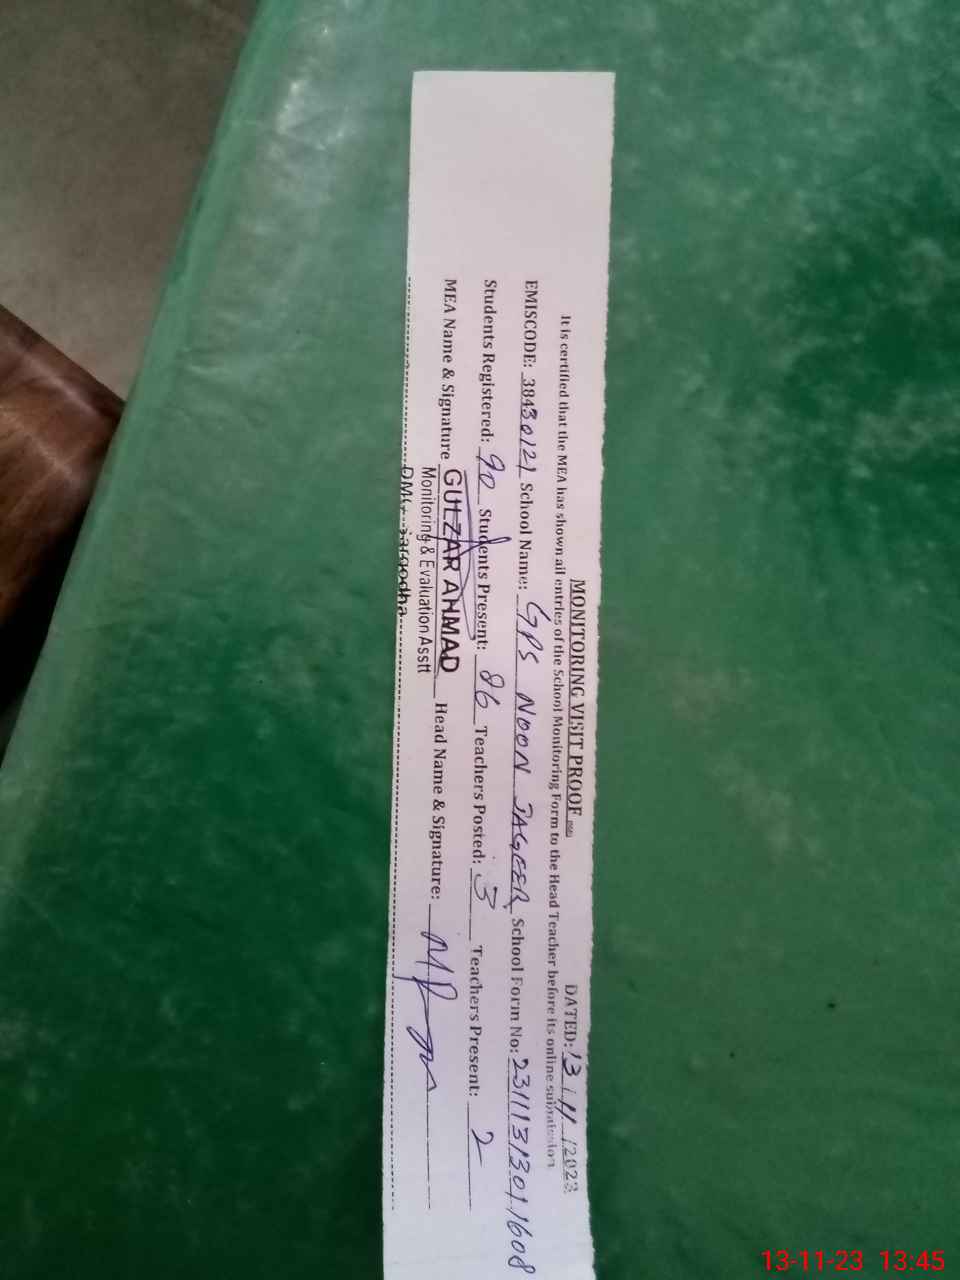 MONITORING VISIT PROOF DATED: 13/11/2023
It is certified that the MEA has shown all entries of the School Monitoring Form to the Head Teacher before its online submission
EMISCODE: 38430121 School Name: GPS NOON JAGEER School Form No: 231113130.1.1608
Students Registered: 90 Students Present: 86 Teachers Posted: 3 Teachers Present: 2
MEA Name & Signature GULZAR AHMAD Head Name & Signature:
Monitoring & Evaluation Asstt
DMO Sargodha
13-11-23 13:45